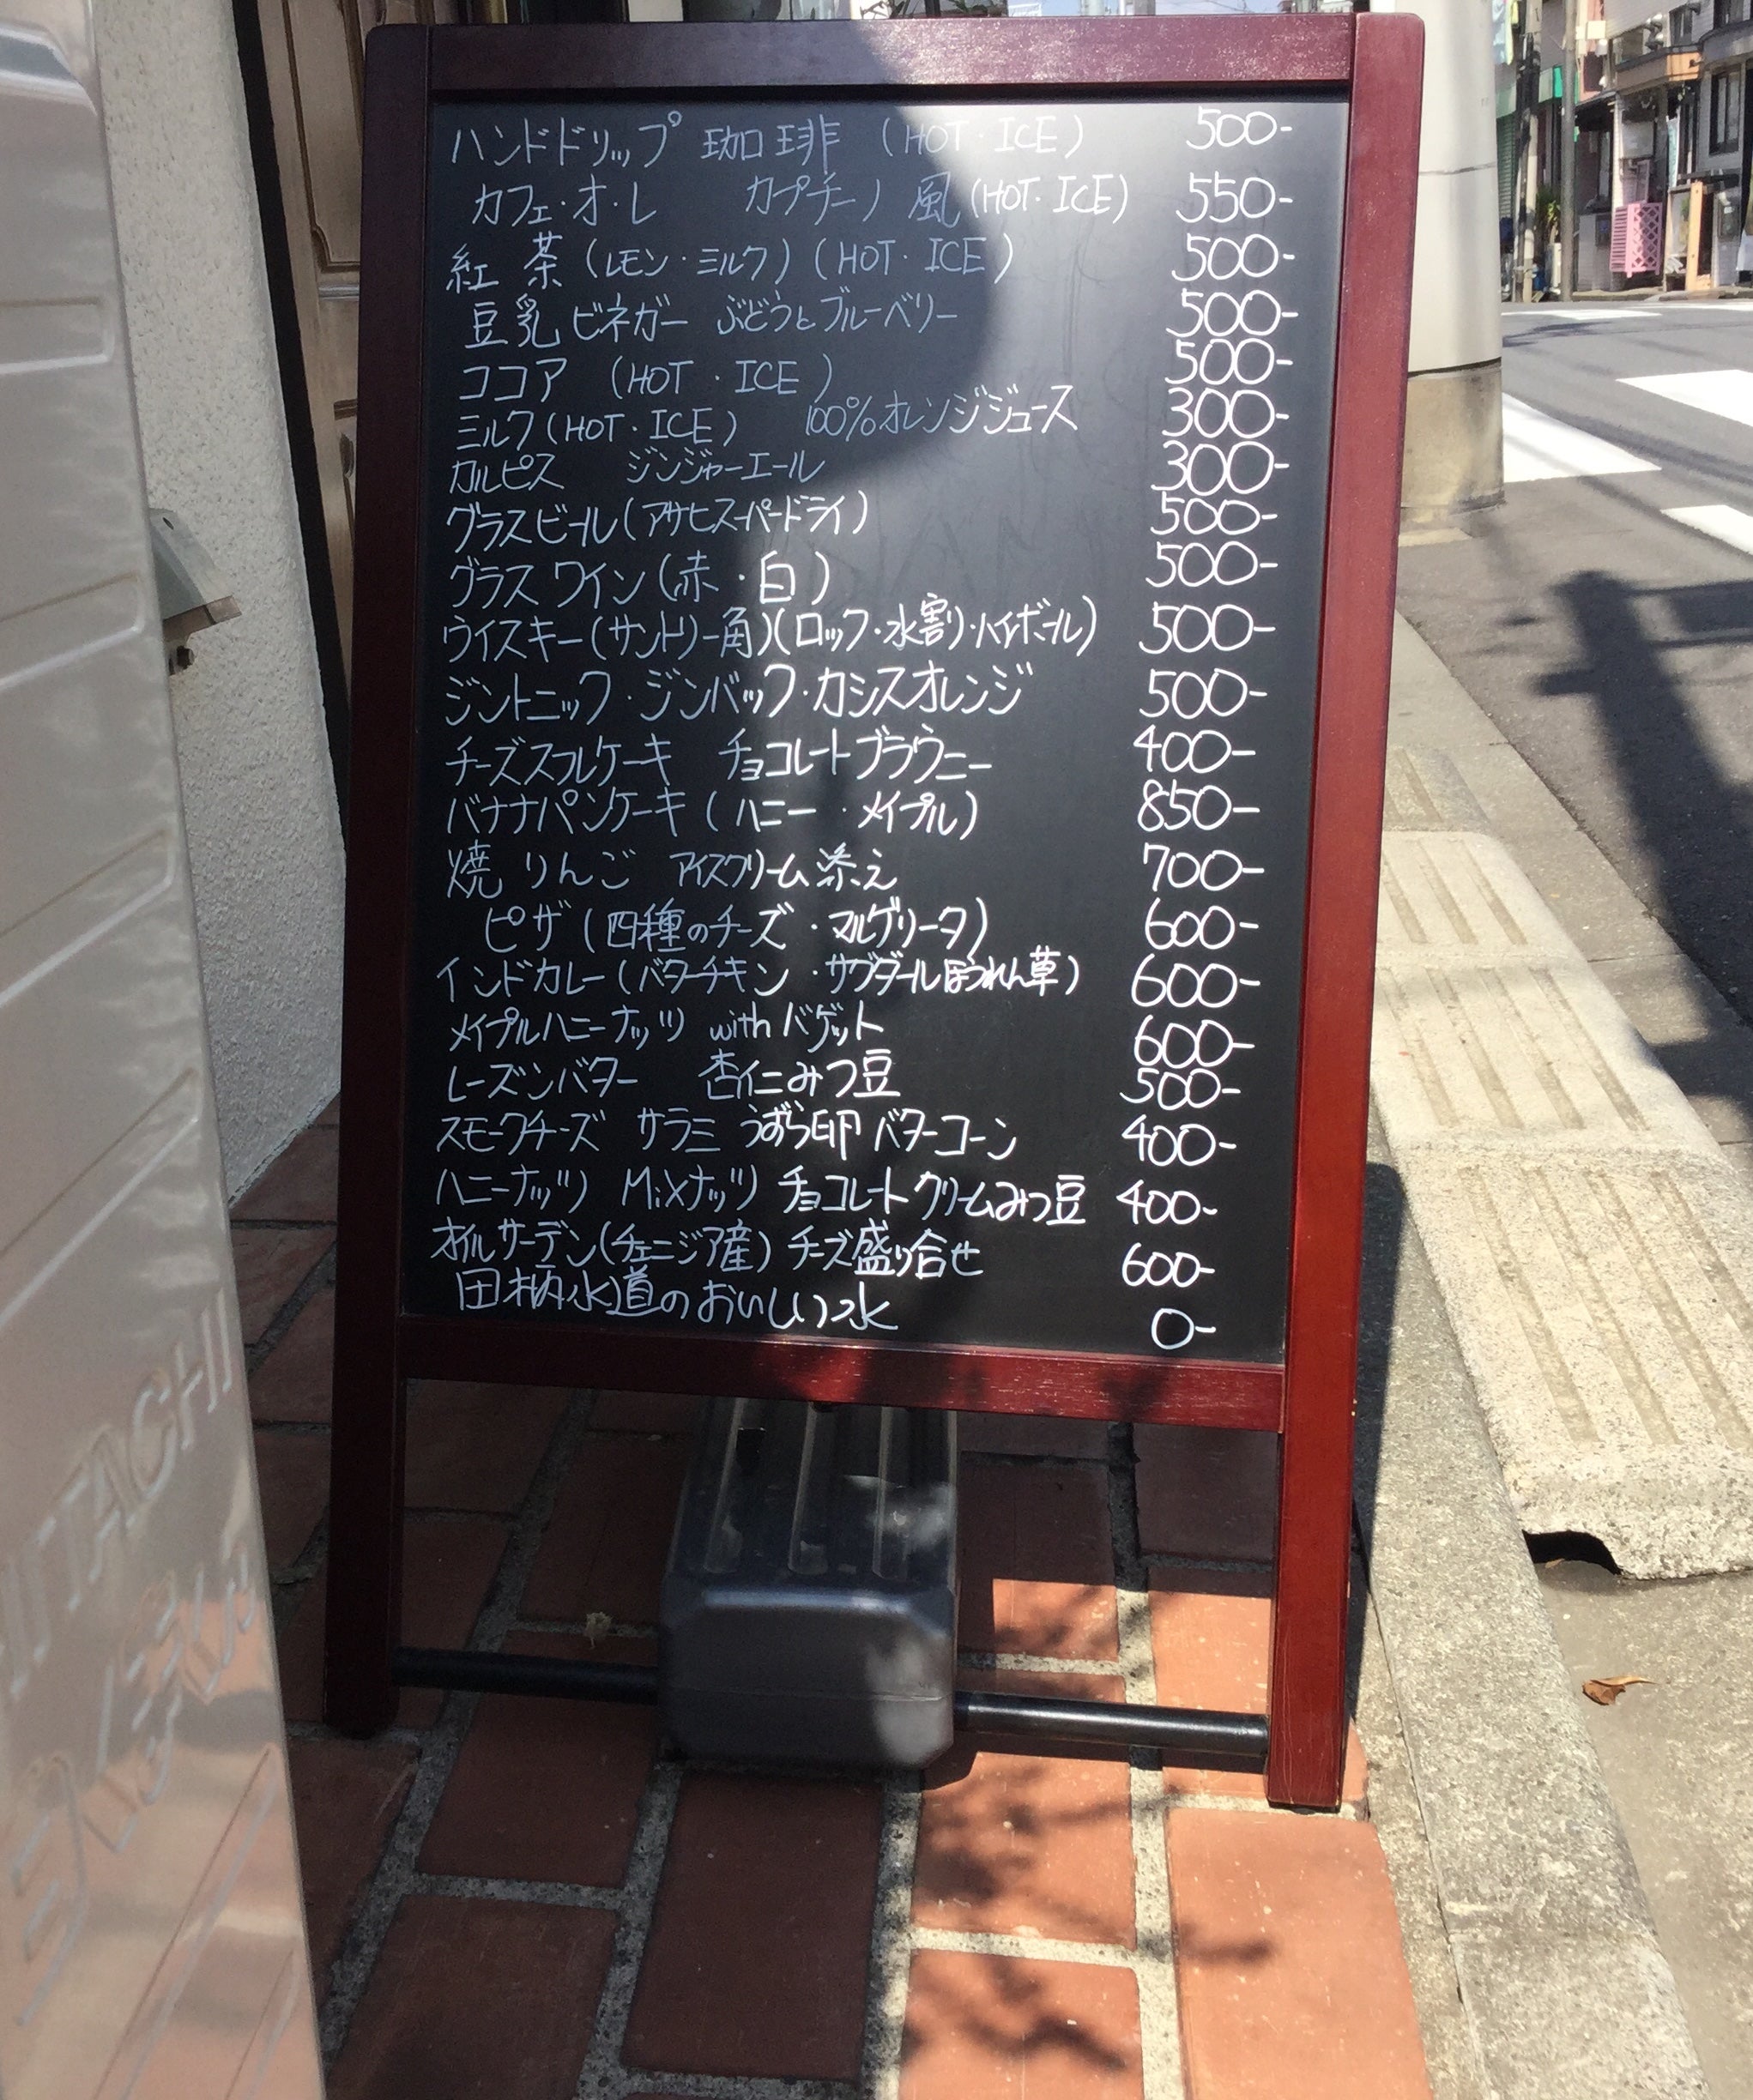 ハンドドリップ 珈琲 (HOT・ICE) 500-
カフェ・オ・レ カプチーノ風(HOT・ICE) 550-
紅茶(レモン・ミルク)(HOT・ICE) 500-
豆乳ビネガー ぶどうとブルーベリー 500-
ココア (HOT・ICE) 500-
ミルク(HOT・ICE) 100%オレンジジュース 300-
カルピス ジンジャーエール 300-
グラスビール(アサヒスーパードライ) 500-
グラスワイン(赤・白) 500-
ウイスキー(サントリー角)(ロック・水割り・ハイボール) 500-
ジントニック・ジンバック・カシスオレンジ 500-
チーズスフレケーキ チョコレートブラウニー 400-
バナナパンケーキ(ハニー・メイプル) 850-
焼りんご アイスクリーム添え 700-
ピザ(四種のチーズ・マルゲリータ) 600-
インドカレー(バターチキン・サグダールほうれん草) 600-
メイプルハニーナッツ with バゲット 600-
レーズンバター 杏仁みつ豆 500-
スモークチーズ サラミ うずら卵 バターコーン 400-
ハニーナッツ Mixナッツ チョコレート クリームみつ豆 400-
オイルサーデン(チェニジア産) チーズ盛り合せ 600-
田柄水道のおいしい水 0-
HITACHI